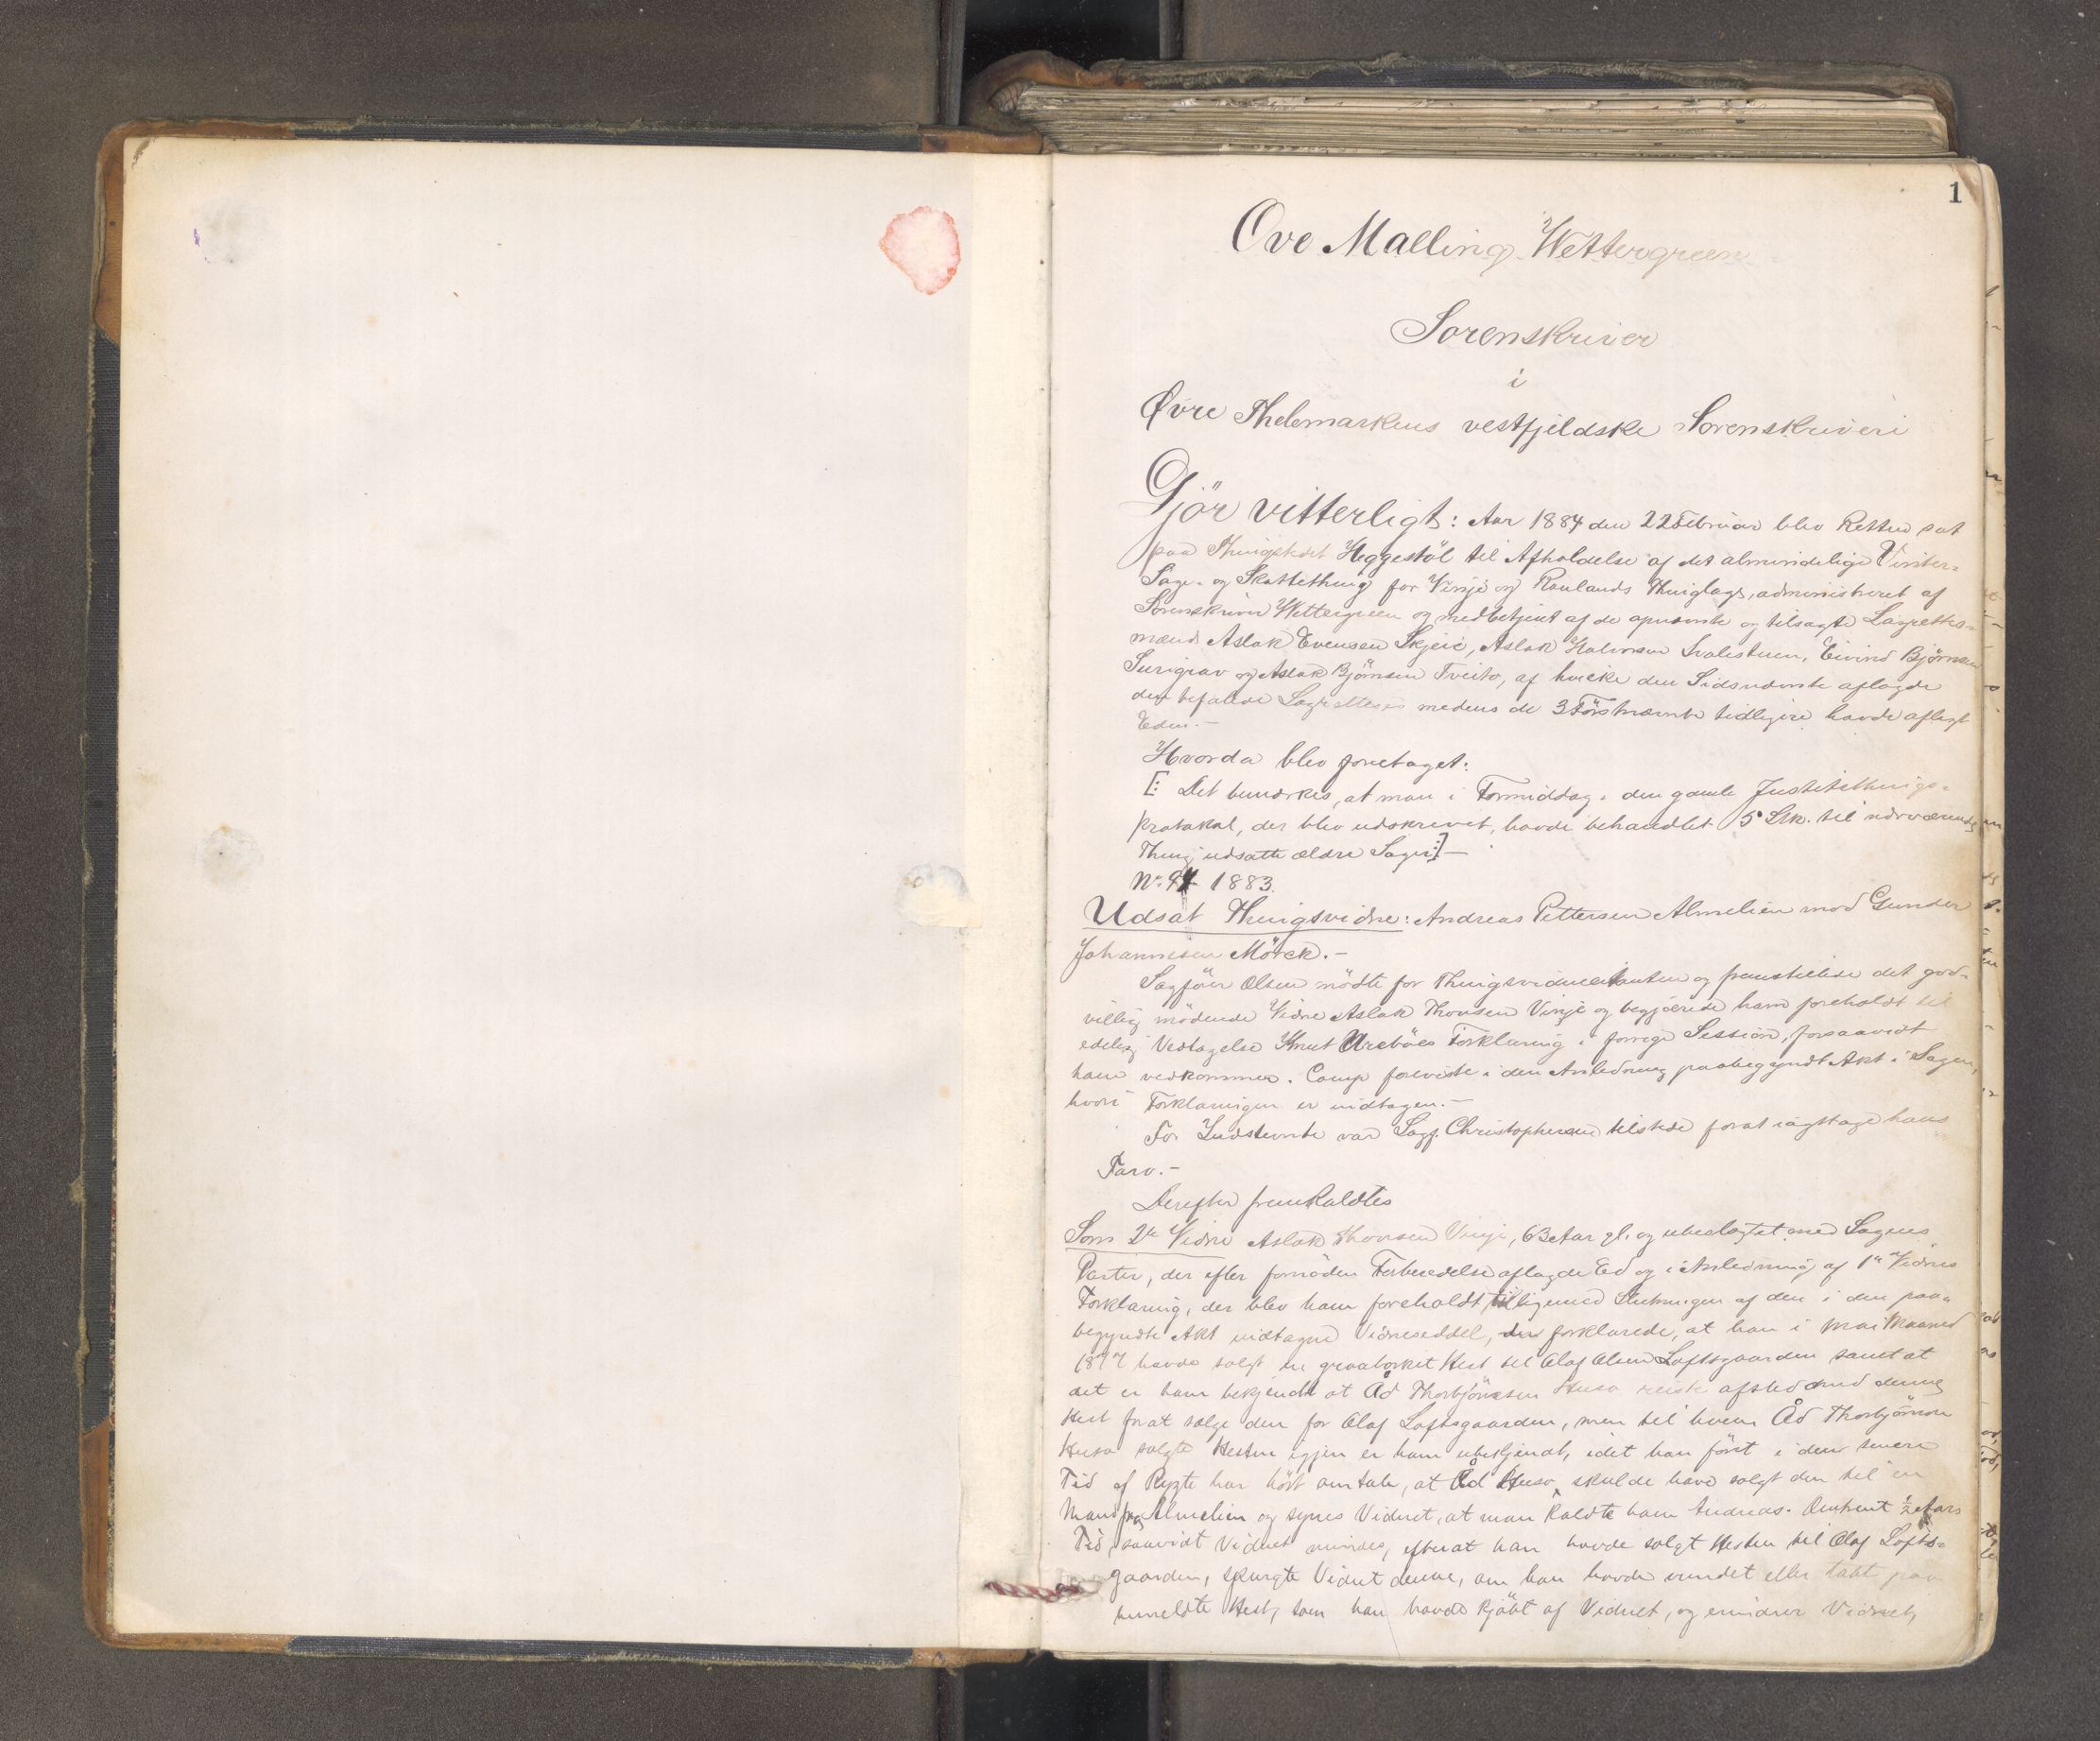 1
Ove Malling Wettergreen
Sorenskriver
i
Øvre Thelemarkens vestfjeldske Sorenskriveri
Gjör vitterligt: Aar 1884 den 22 Februar blev Retten sat
paa Thingstedet Heggestöl til Afholdelse af det almindelige Vinter-
Sage- og Skattething for Vinje og Raulands Thinglag, administreret af
Sorenskriver Wettergreen og medbetjent af de opnævnte og tilsagte Lagrettes-
mænd Aslak Evensen Skjeie, Aslak Halvorsen Svalestuen, Eivind Björnsen
Surigrav og Aslak Björnsen Tveito, af hvilke den Sidstnævnte aflagde
den befalede Lagrettesed medens de 3 Förstnævnte tidligere havde aflagt
Eden.-
Hvorda blev foretaget:
[: Det bemærkes, at man i Formiddag i den gamle Justitsthings-
protokol, der blev udskrevet, havde behandlet 5 Stk. til nærværende
Thing udsatte ældre Sager:]-
No. 94 1883.
Udsat Thingsvidne: Andreas Pettersen Almelien mod Gunder
Johannesen Mörck.-
Sagförer Olsen mödte for Thingsvidnecitanten og fremstillede det god-
villig mödende Vidne Aslak Thovsen Vinje og begjærede ham foreholdt til
edelig Vedtagelse Knut Ureböes Forklaring i forrige Session, forsaavidt
ham vedkommer. Comp foreviste i den Anledning paabegyndt Akt i Sagen,
hvori Forklaringen er indtagen.-
For Indstevnte var Sagf. Christophersen tilstede forat iagttage hans
Tarv.-
Derefter fremkaldtes
Som 2de Vidne Aslak Thovsen Vinje, 63 Aar gl. og ubeslægtet med Sagens
Parter, der efter fornöden Forberedelse aflagde Ed og i Anledning af 1ste Vidnes
Forklaring, der blev ham foreholdt tilligemed Slutningen af den i den paa-
begyndte Akt indtagne Vidneseddel, forklarede, at han i Mai Maaned
1877 havde solgt en graaborket Hest til Olaf Olsen Loftsgaarden samt at
det er ham bekjendt at Åd Thorbjörnsen Huso reiste afsted med denne
Hest forat sælge den for Olaf Loftsgaarden, men til hvem Åd Thorbjörnsen
Huso solgte Hesten igjen er ham ubekjendt, idet han först i den senere
Tid af Rygte har hört omtale, at Åd Huso skulde have solgt den til en
Mand fra Almelien og synes Vidnet, at man kaldte ham Andreas. Omtrent ½ Aars
Tid, saavidt Vidnet mindes, efterat han havde solgt Hesten til Olaf Lofts-
gaarden, spurgte Vidnet denne, om han havde vundet eller tabt paa
anmeldte Hest, som han havde kjöbt af Vidnet, og erindrer Vidnet,